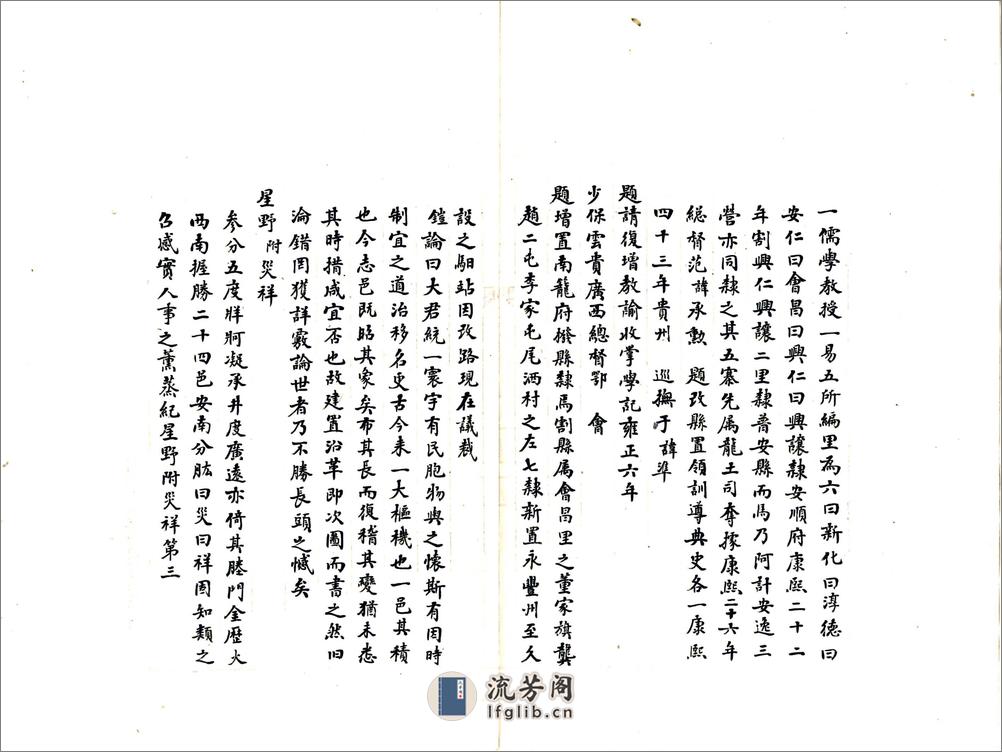 一儒學教授一易五所編里為六曰新化曰淳德曰
安仁曰會昌曰興仁曰興讓隸安順府康熙二十二
年割興仁興讓二里隸普安縣而馬乃阿計安逸三
營亦同隸之其五寨先屬龍土司奪據康熙二十六年
總督范諱承勲 題改縣置領訓導典史各一康熙
四十三年貴州 巡撫于諱準
題請復增教諭收掌學記雍正六年
少保雲貴廣西總督鄂 會
題增置南龍府撥縣隸焉割縣屬會昌里之董家旗龔
趙二屯李家屯尾洒村之左七隸新置永豐州至久
設之馹站因改路現在議裁
鎧論曰大君統一寰宇有民胞物與之懷斯有因時
制宜之道治移名更古今來一大樞機也一邑其積
也今志邑既昭其象矣布其長而復稽其變猶未悉
其時措咸宜否也故建置沿革即次圖而書之然旧
淪錯罔獲詳覈論世者乃不勝長頭之憾矣
星野附災祥
參分五度牂牁凝承井度廣遠亦倚其塍門金歷火
西南握勝二十四邑安南分肱曰災曰祥固知類之
召感實人事之薰蒸紀星野附災祥第三
流芳阁
lfglib.cn